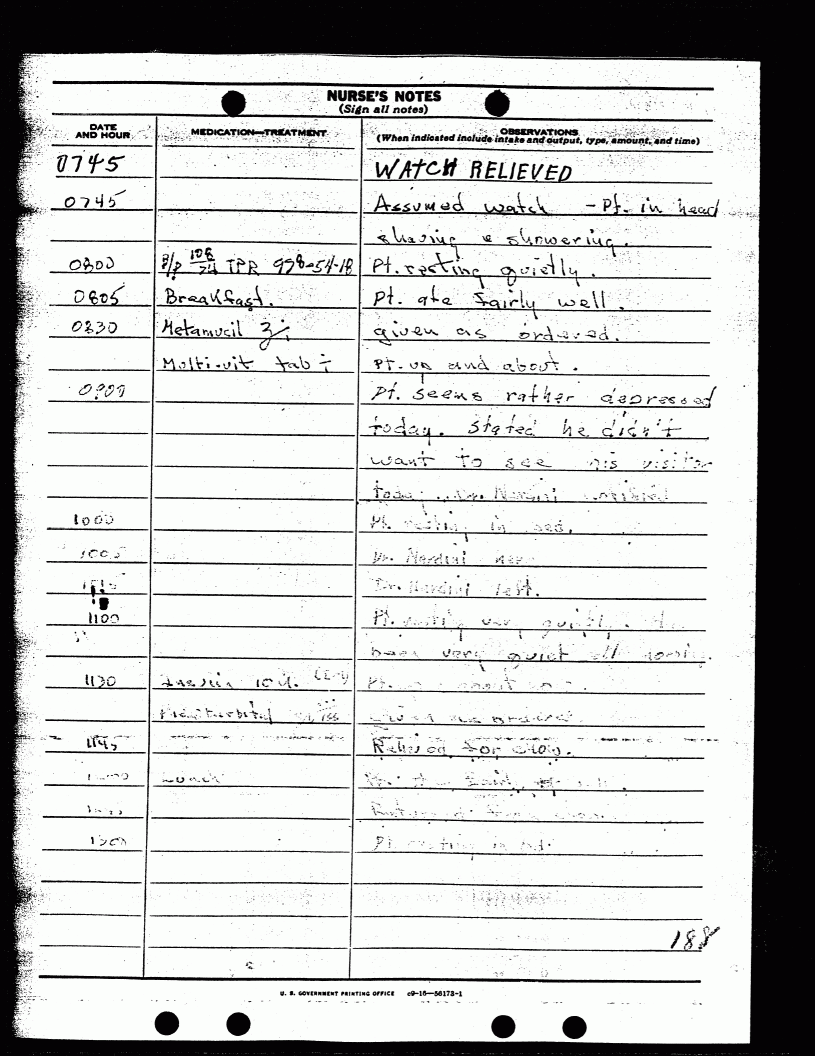 NURSE'S NOTES
(Sign all notes)
DATE AND HOUR
MEDICATION—TREATMENT
OBSERVATIONS
(When indicated include intake and output, type, amount, and time)
0745 WATCH RELIEVED
0745 Assumed watch - Pt. in head
shaving & showering.
0800 B/P 108/74 TPR 978-54-18 Pt. resting quietly.
0805 Breakfast. Pt. ate fairly well.
0830 Metamucil given as ordered.
Multi-vit tab Pt. up and about.
0900 Pt. seems rather depressed
today. Stated he didn't
want to see his visitor
today. Dr. Nardini notified
1000 Pt. resting in bed.
1005 Dr. Nardini here
Dr. Nardini left.
1100 Pt. resting very quietly.
been very quiet all
1130 Pt. about
given as ordered
1145 Relieved for chow.
Lunch Pt.
Returned from chow.
1300 Pt. resting in bed.
188
U. S. GOVERNMENT PRINTING OFFICE c9-16—56173-1